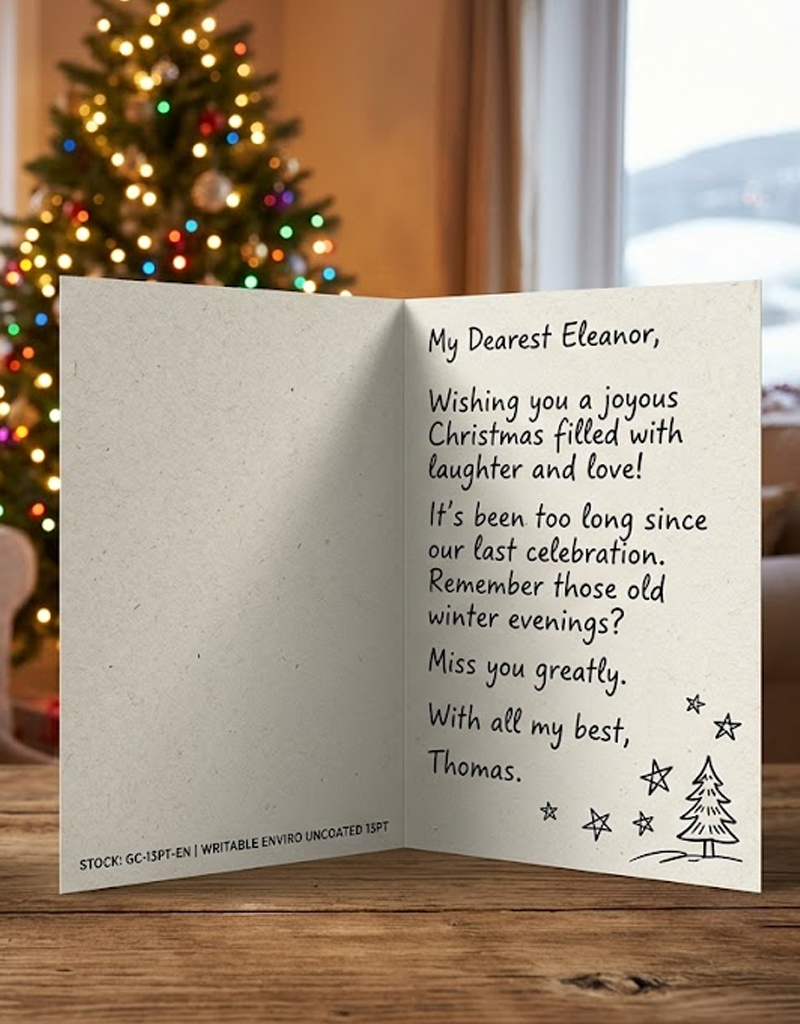 STOCK: GC-13PT-EN | WRITABLE ENVIRO UNCOATED 13PT
My Dearest Eleanor,
Wishing you a joyous
Christmas filled with
laughter and love!
It's been too long since
our last celebration.
Remember those old
winter evenings?
Miss you greatly.
With all my best,
Thomas.